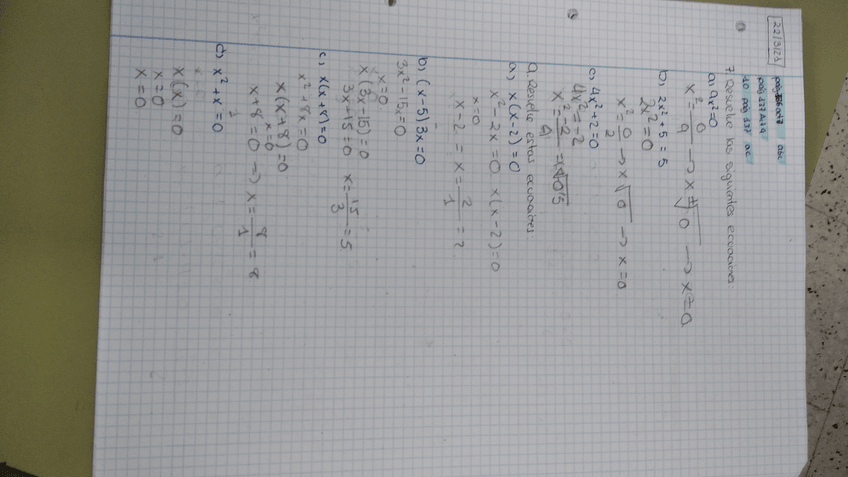 22/3/23
pág act 7 abc
pág 137 Act 9
10 pág 137 a c
7. Resuelve las siguientes ecuaciones:
a) 9x²=0
x² = 0/9 → x = ±√0 → x = 0
b) 2x² + 5 = 5
2x² = 0
x² = 0/2 → x √0 → x = 0
c) 4x² + 2 = 0
4x² = -2
x² = -2/4 = √-0'5
9. Resuelve estas ecuaciones
a) x(x-2) = 0
x² - 2x = 0 x(x-2) = 0
x=0
x - 2 = x = 2/1 = 2
b) (x-5) 3x = 0
3x² - 15x = 0
x=0
x(3x-15) = 0
3x - 15 = 0 x = 15/3 = 5
c) x(x+8) = 0
x² + 8x = 0
x(x+8) = 0
x=0
x+8 = 0 → x = 8/1 = 8
d) x² + x = 0
x(x) = 0
x=0
x=0